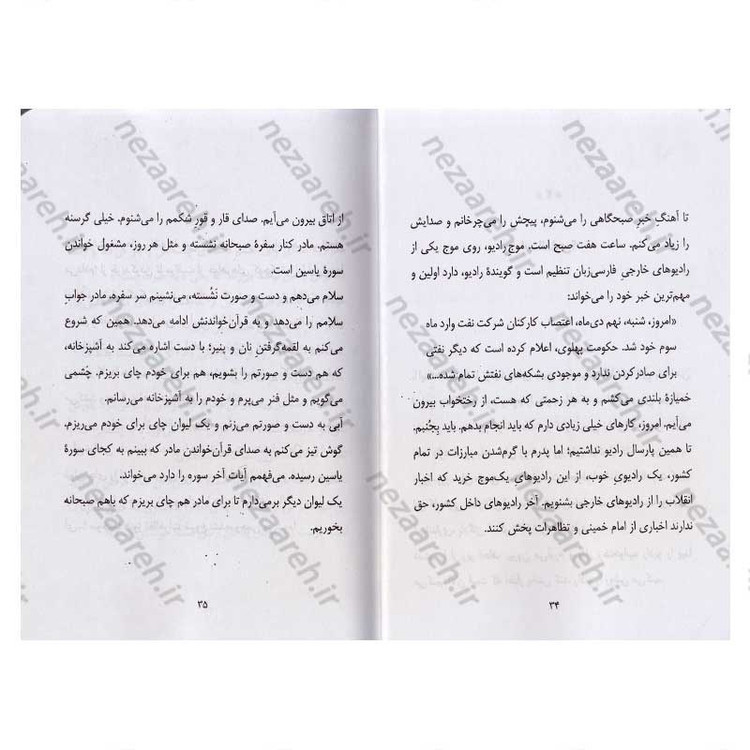 تا آهنگ خبر صبحگاهی را می‌شنوم، پیچش را می‌چرخانم و صدایش
را زیاد می‌کنم. ساعت هفت صبح است. موج رادیو، روی موج یکی از
رادیوهای خارجیِ فارسی‌زبان تنظیم است و گویندهٔ رادیو، دارد اولین و
مهم‌ترین خبر خود را می‌خواند:
«امروز، شنبه، نهم دی‌ماه، اعتصاب کارکنان شرکت نفت وارد ماه
سوم خود شد. حکومت پهلوی، اعلام کرده است که دیگر نفتی
برای صادرکردن ندارد و موجودی بشکه‌های نفتش تمام شده...»
خمیازهٔ بلندی می‌کشم و به هر زحمتی که هست، از رختخواب بیرون
می‌آیم. امروز، کارهای خیلی زیادی دارم که باید انجام بدهم. باید بجُنبم.
تا همین پارسال رادیو نداشتیم؛ اما پدرم با گرم‌شدن مبارزات در تمام
کشور، یک رادیوی خوب، از این رادیوهای یک‌موج خرید که اخبار
انقلاب را از رادیوهای خارجی بشنویم. آخر رادیوهای داخل کشور، حق
ندارند اخباری از امام خمینی و تظاهرات پخش کنند.
۳۴
از اتاق بیرون می‌آیم. صدای قار و قور شکمم را می‌شنوم. خیلی گرسنه
هستم. مادر کنار سفرهٔ صبحانه نشسته و مثل هر روز، مشغول خواندن
سورهٔ یاسین است.
سلام می‌دهم و دست و صورت نَشُسته، می‌نشینم سر سفره. مادر جواب
سلامم را می‌دهد و به قرآن‌خواندنش ادامه می‌دهد. همین که شروع
می‌کنم به لقمه‌گرفتنِ نان و پنیر؛ با دست اشاره می‌کند به آشپزخانه،
که هم دست و صورتم را بشویم، هم برای خودم چای بریزم. چَشمی
می‌گویم و مثل فنر می‌پرم و خودم را به آشپزخانه می‌رسانم.
آبی به دست و صورتم می‌زنم و یک لیوان چای برای خودم می‌ریزم.
گوش تیز می‌کنم به صدای قرآن‌خواندن مادر که ببینم به کجای سورهٔ
یاسین رسیده. می‌فهمم آیات آخر سوره را دارد می‌خواند.
یک لیوان دیگر برمی‌دارم تا برای مادر هم چای بریزم که باهم صبحانه
بخوریم.
۳۵
nezaareh.ir
nezaareh.ir
nezaareh.ir
nezaareh.ir
nezaareh.ir
nezaareh.ir